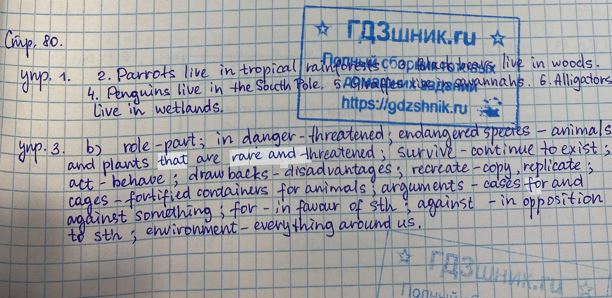 Стр. 80.
упр. 1. 2. Parrots live in tropical rainforests. live in woods.
4. Penguins live in the South Pole. 5. savannahs. 6. Alligators
live in wetlands.
упр. 3. b) role-part; in danger-threatened, endangered species - animals
and plants that are rare and threatened; survive - continue to exist;
act - behave; drawbacks - disadvantages; recreate - copy, replicate;
cages - fortified containers for animals; arguments - cases for and
against something; for - in favour of sth; against - in opposition
to sth; environment - everything around us.
☆ ГДЗшник.ru ☆
Полный сборник готовых
домашних заданий
https://gdzshnik.ru
☆ ГДЗшник.ru ☆
Полный